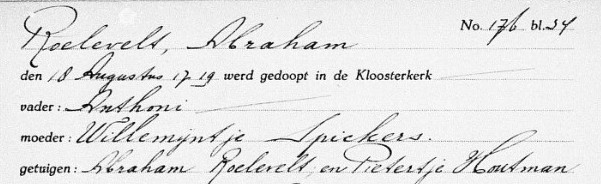 No. 176 bl. 54
Roelevelt, Abraham
den 18 Augustus 1719 werd gedoopt in de Kloosterkerk
vader: Anthoni
moeder: Willemijntje Spiekers.
getuigen: Abraham Roelevelt, en Pietertje Houtman